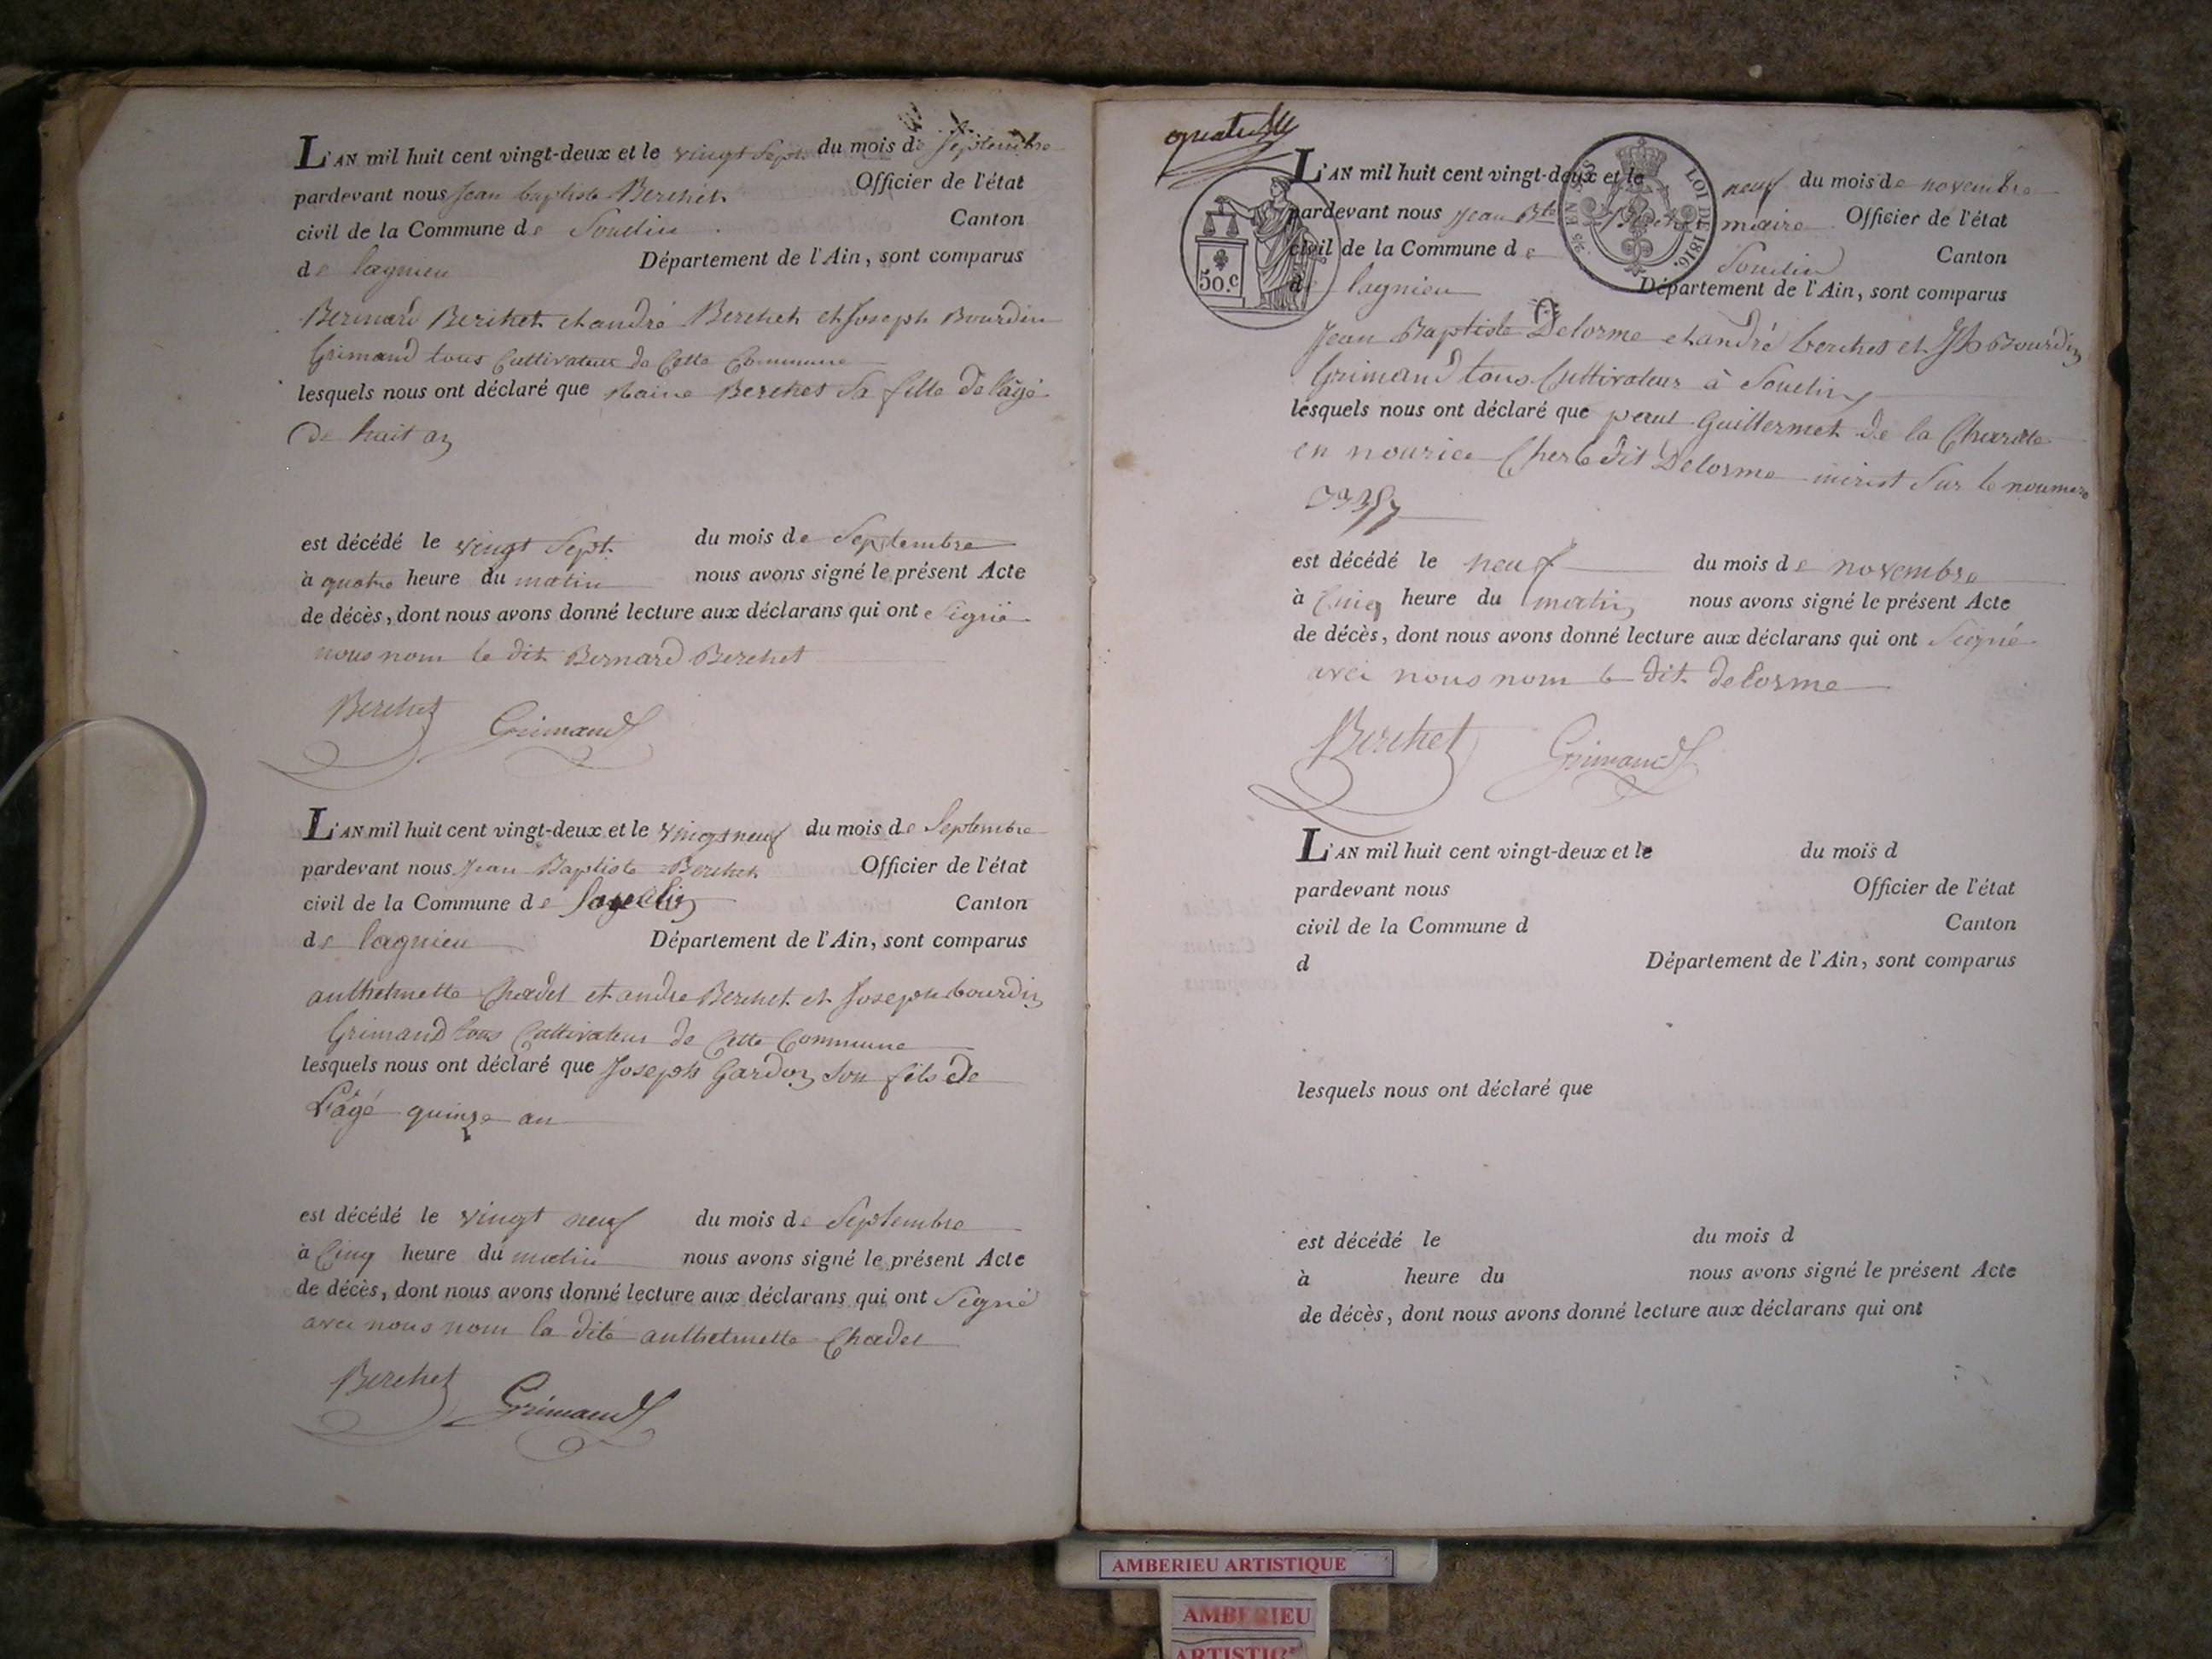 L'AN mil huit cent vingt-deux et le vingt Sept du mois de Septembre
pardevant nous Jean baptiste Berchet Officier de l'état
civil de la Commune de Soudin Canton
de lagnieu Département de l'Ain, sont comparus
Bernard Berchet et andré Berchet et Joseph Bourdin
Grimand tous Cultivateur de Cette Commune
lesquels nous ont déclaré que Berchet Sa fille de l'âgé
de huit an
est décédé le vingt Sept du mois de Septembre
à quatre heure du matin nous avons signé le présent Acte
de décès, dont nous avons donné lecture aux déclarans qui ont Signé
nous nom le dit Bernard Berchet
Berchet Grimand
L'AN mil huit cent vingt-deux et le vingt neuf du mois de Septembre
pardevant nous Jean Baptiste Berchet Officier de l'état
civil de la Commune de Canton
de lagnieu Département de l'Ain, sont comparus
anthelmette Chadel et andre Berchet et Joseph bourdin
Grimand tous Cultivateur de Cette Commune
lesquels nous ont déclaré que Joseph Gardon Son fils de
L'âgé quinze an
est décédé le vingt neuf du mois de Septembre
à Cinq heure du matin nous avons signé le présent Acte
de décès, dont nous avons donné lecture aux déclarans qui ont Signé
avec nous nom la dite anthelmette Chadel
Berchet Grimand
L'AN mil huit cent vingt-deux et le neuf du mois de novembre
pardevant nous Jean Bte Berchet maire Officier de l'état
civil de la Commune de Soudin Canton
de lagnieu Département de l'Ain, sont comparus
50.c
5/5 EN SUS
LOI DE 1816.
Jean Baptiste Delorme et andré berchet et Jh Bourdin
Grimand tous Cultivateur à Soudin
lesquels nous ont déclaré que paul Guillermet de la Charite
en nourice Cher le dit Delorme Sur le noumero
est décédé le neuf du mois de novembre
à Cinq heure du matin nous avons signé le présent Acte
de décès, dont nous avons donné lecture aux déclarans qui ont Signé
avec nous nom le dit delorme
Berchet Grimand
L'AN mil huit cent vingt-deux et le du mois d
pardevant nous Officier de l'état
civil de la Commune d Canton
d Département de l'Ain, sont comparus
lesquels nous ont déclaré que
est décédé le du mois d
à heure du nous avons signé le présent Acte
de décès, dont nous avons donné lecture aux déclarans qui ont
AMBERIEU ARTISTIQUE
AMBERIEU
ARTISTIQ